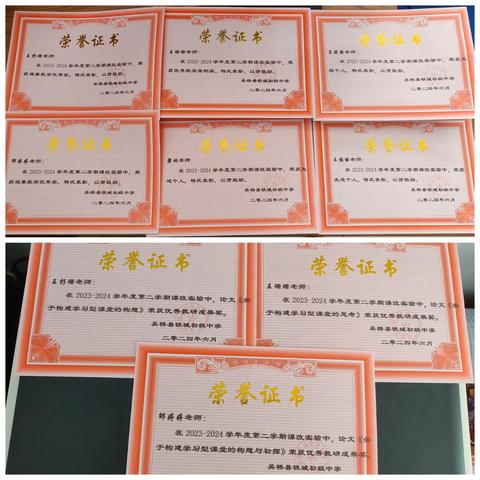 荣誉证书
王杉珊老师:
在2023-2024学年度第二学期课改实验中,荣
获观摩教学优秀奖。特此表彰,以资鼓励。
吴桥县铁城初级中学
二〇二四年六月
荣誉证书
王珊珊老师:
在2023-2024学年度第二学期课改实验中,荣
获优秀教学案例奖。特此表彰,以资鼓励。
吴桥县铁城初级中学
二〇二四年六月
荣誉证书
老师:
在2023-2024学年度第二学期课改实验中,荣获先
进个人。特此表彰,以资鼓励。
吴桥县铁城初级中学
二〇二四年六月
荣誉证书
郭蒋蒋老师:
在2023-2024学年度第二学期课改实验中,荣
获观摩教学优秀奖。特此表彰,以资鼓励。
吴桥县铁城初级中学
二〇二四年六月
荣誉证书
老师:
在2023-2024学年度第二学期课改实验中,荣获先
进个人。特此表彰,以资鼓励。
吴桥县铁城初级中学
二〇二四年六月
荣誉证书
老师:
在2023-2024学年度第二学期课改实验中,荣获
先进个人。特此表彰,以资鼓励。
吴桥县铁城初级中学
二〇二四年六月
荣誉证书
王杉珊老师:
在2023-2024学年度第二学期课改实验中,论文《关
于构建学习型课堂的构想》荣获优秀教研成果奖。
吴桥县铁城初级中学
二〇二四年六月
荣誉证书
王珊珊老师:
在2023-2024学年度第二学期课改实验中,论文《关
于构建学习型课堂的思考》荣获优秀教研成果奖。
吴桥县铁城初级中学
二〇二四年六月
荣誉证书
郭蒋蒋老师:
在2023-2024学年度第二学期课改实验中,论文《关
于构建学习型课堂的构想与初探》荣获优秀教研成果奖。
吴桥县铁城初级中学
二〇二四年六月